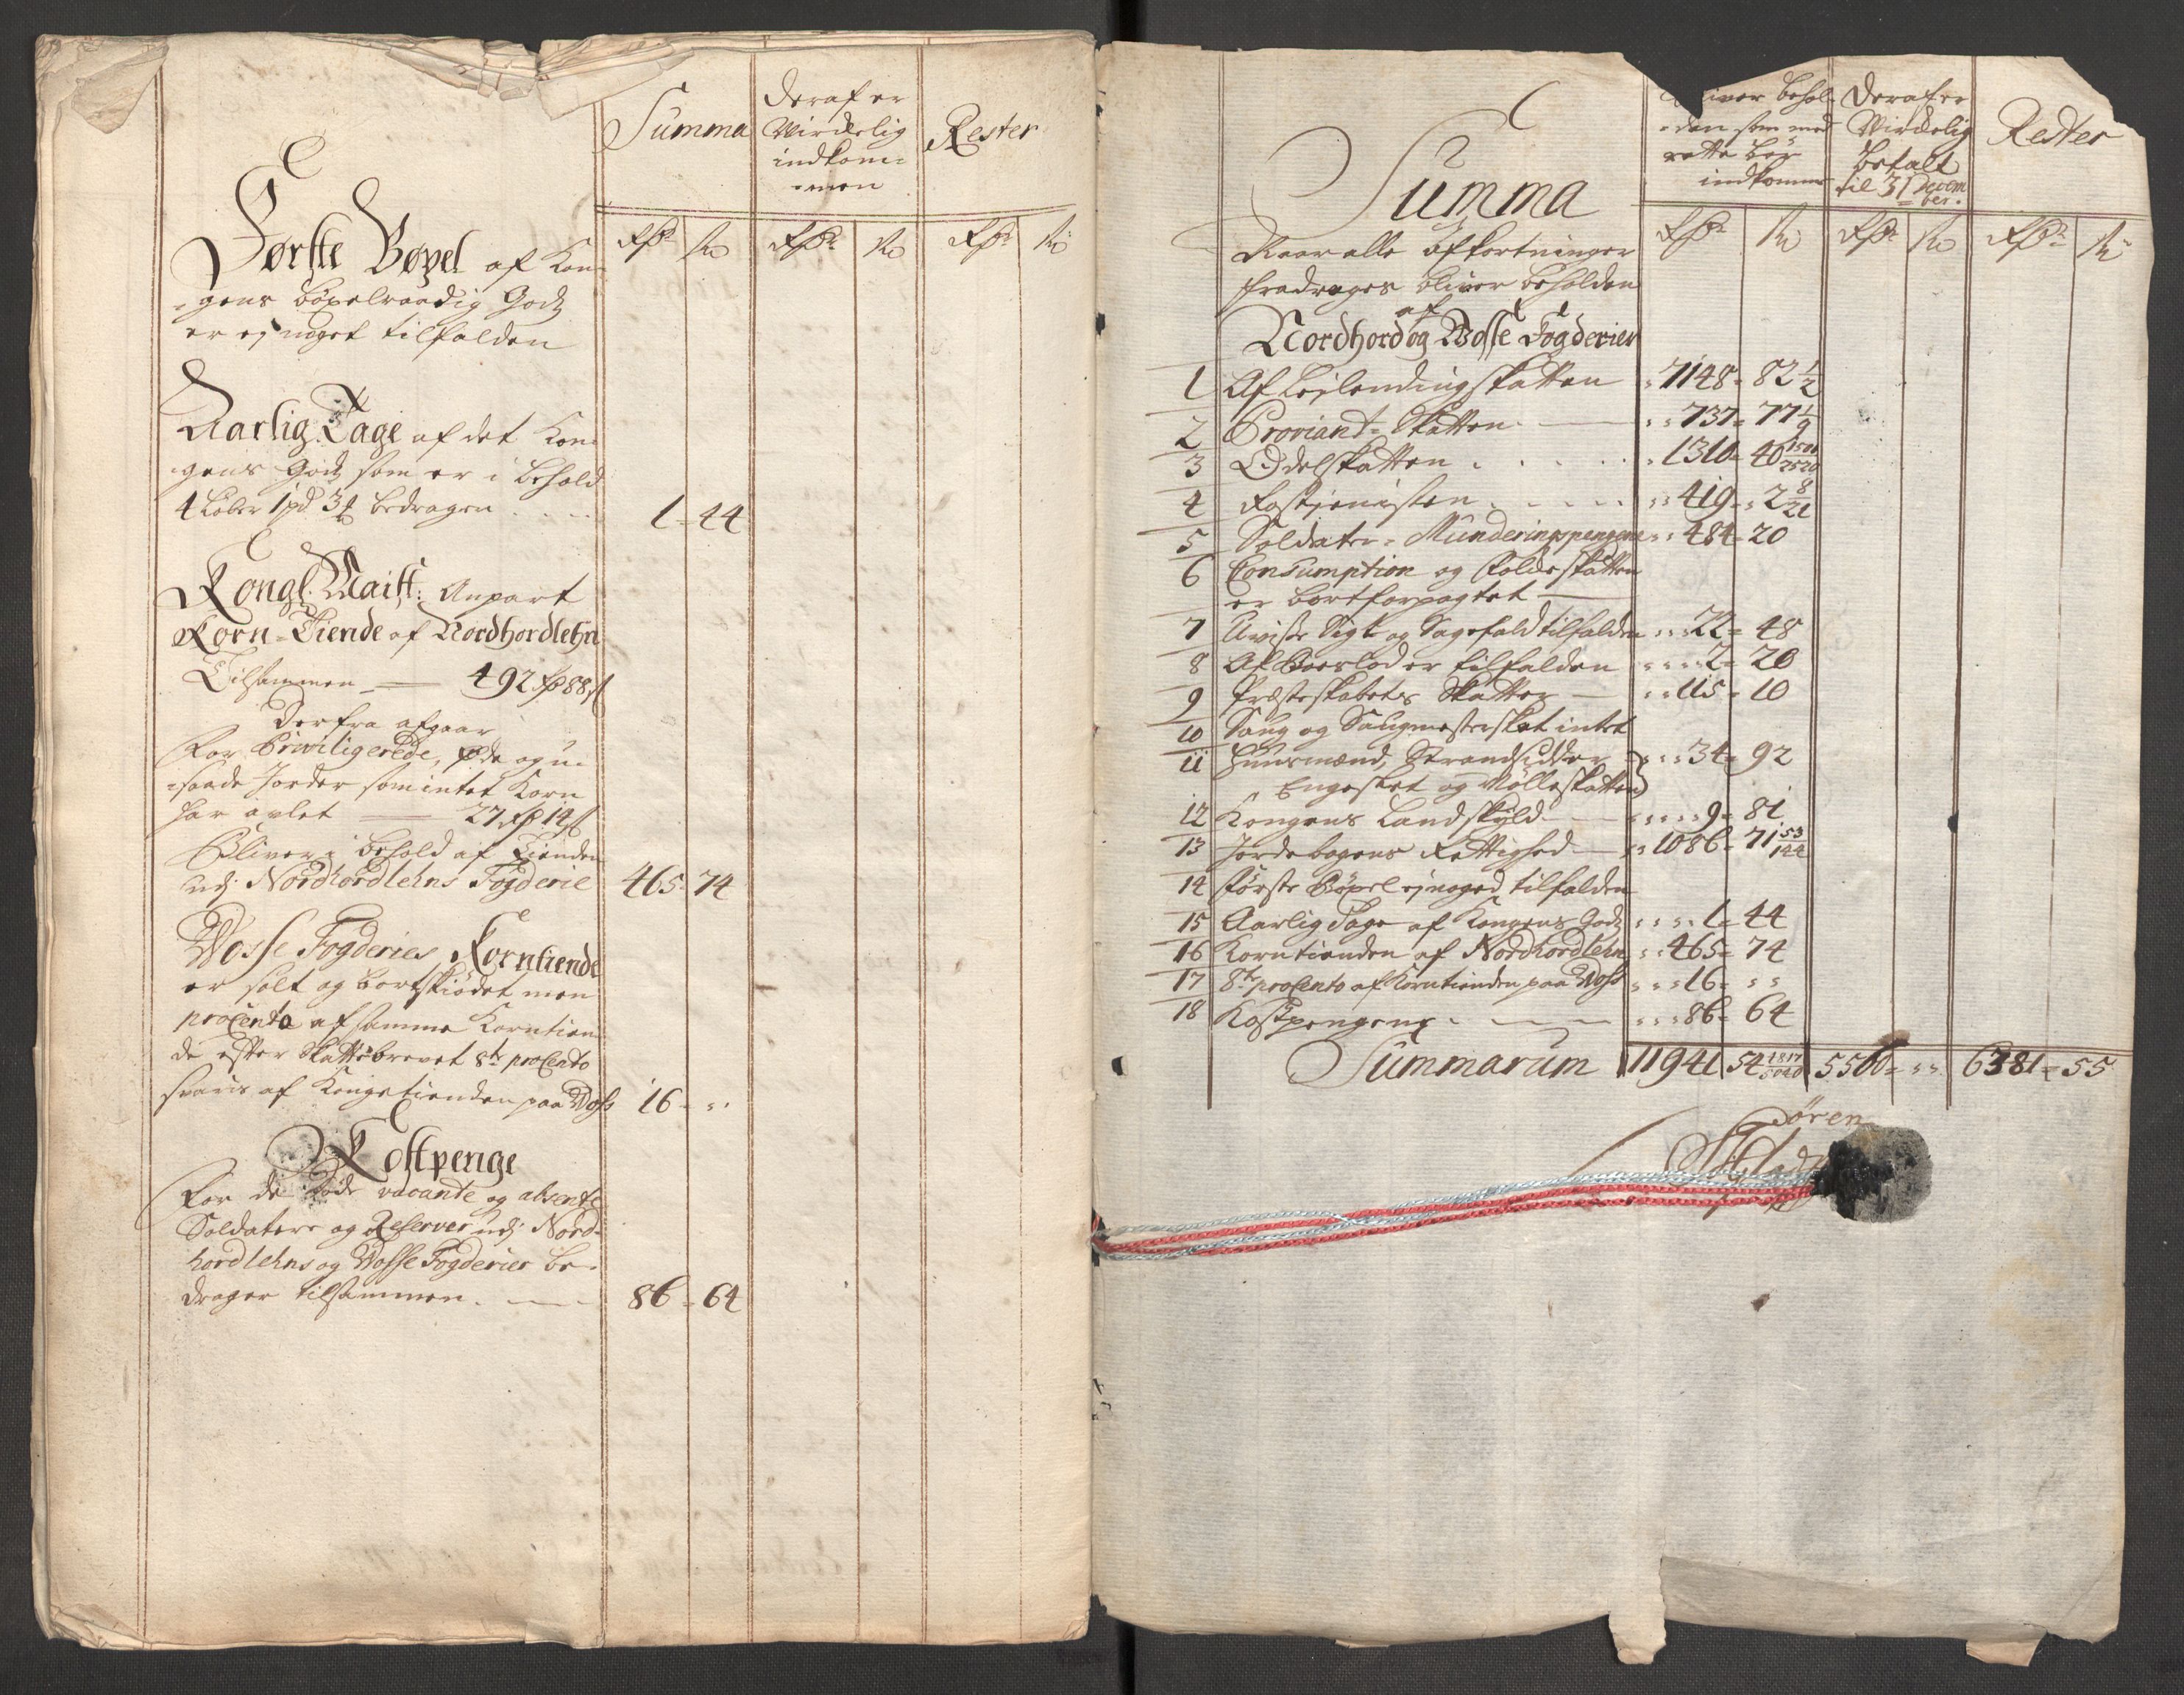 Summa
Deraf er
Wirckelig
indkom=
=men
Rester
Rdr ß Rdr ß Rdr ß
Første Bøxel af Kon=
=gens bøxelraadig Godz
er ej noget tilfalden
Aarlig Tage af det Kon=
=gens Godz som er i behold
4 Løber 1 pd 3 bedragen 1 = 44
Kongl: Maits: Anpart
Korn=Tiende af Nordhordlehn
Tilsammen 492 Rdr 88 ß
Derfra afgaar
For Priviligerede, øde og u=
=saade Jorder som intet Korn
har avlet 27 Rdr 14 ß
Bliver i behold af Tienden
udj Nordhordlehns Fogderie 465 = 74
Wosse Fogderies Korntiende
er solt og bortskiødet men
procento af samme Korntien
de efter Skattebrevet 8te procento
svaris af Kongetienden paa Woss 16 = "
Kostpenge
For de døde vacante og absente
Soldater og Reserver udj Nord=
hordlehns og Wosse Fogderier be=
drager tilsammen 86 = 64
Summa
Naar alle afkortninger
fradrages bliver beholden
af
Nordhord og Wosse Fogderier
bliver behol=
=den som med
rette bør
indkomme
Deraf er
Wirckelig
betalt
til 31 Decem
ber.
Rester
Rdr ß Rdr ß Rdr ß
1 Af Lejlendingskatten 7148 = 82 1/2
2 Proviant=Skatten 737 = 77 1/9
3 Odelskatten 1310 = 40
4 Rostjenisten 419 = 2 8/21
5 Soldater=Munderingspengene 484 = 20
6 Consumption og Foldeskatten
er bortforpagtet
7 Uvisse Sigt og Sagefald tilfalden 22 = 48
8 Af Boeslod er tilfalden 2 = 20
9 Præsteskabets Skatter 115 = 10
10 Saug og Saugmesterskat intet
11 Huusmænd, Strandsidder 34 = 92
Engesket og Mølleskatten
12 Kongens Landskyld 9 = 81
13 Jordebogens Rettighed 1086 = 71 53/144
14 Første Bøxel ej noged tilfalden
15 Aarlig Tage af Kongens Godz 1 = 44
16 Korntienden af Nordhordlehn 465 = 74
17 8te procento af Korntienden paa Woss 16 = "
18 Kostpengene 86 = 64
Summarum 11941 54 1817/5040 5560 = " 6381 = 55
Søren